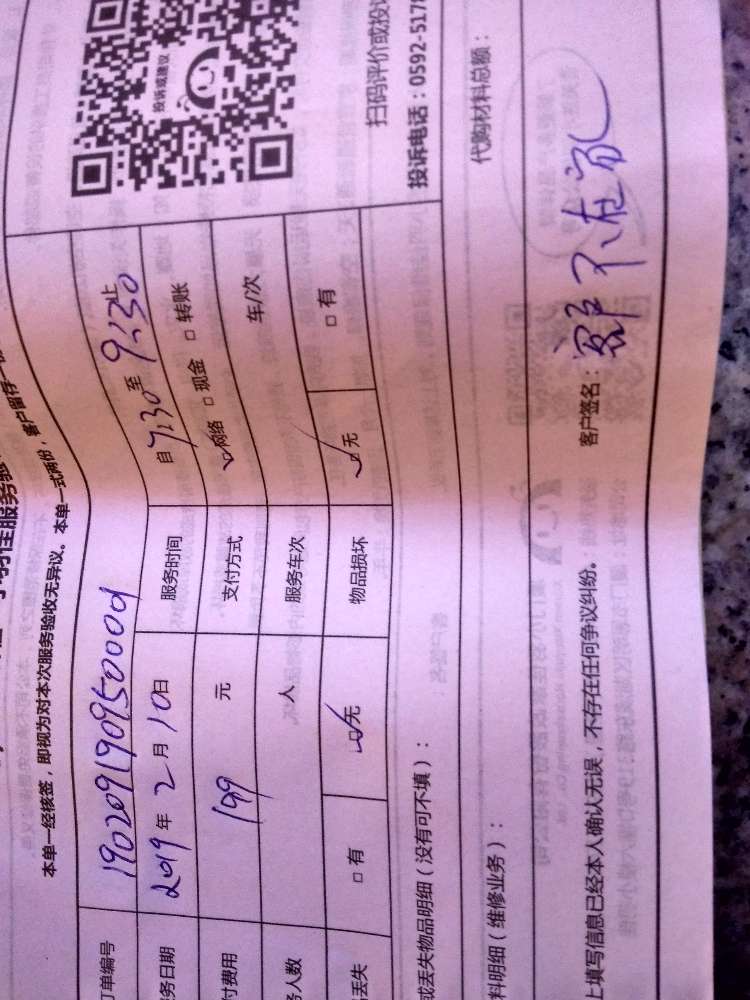 小羽佳服务验
本单一经核签，即视为对本次服务验收无异议。本单一式两份，客户留存一份
订单编号 190209190950000d
投诉或建议
服务日期 2019年2月10日 服务时间 自7:30至9:30止
付费用 199 元 支付方式 网络 现金 转账
务人数 人 服务车次 车/次
品丢失 有 无 物品损坏 无 有
扫码评价或投诉
投诉电话：0592-5178
或丢失物品明细（没有可不填）：
料明细（维修业务）： 代购材料总额：
上填写信息已经本人确认无误，不存在任何争议纠纷。 客户签名：客户不在家